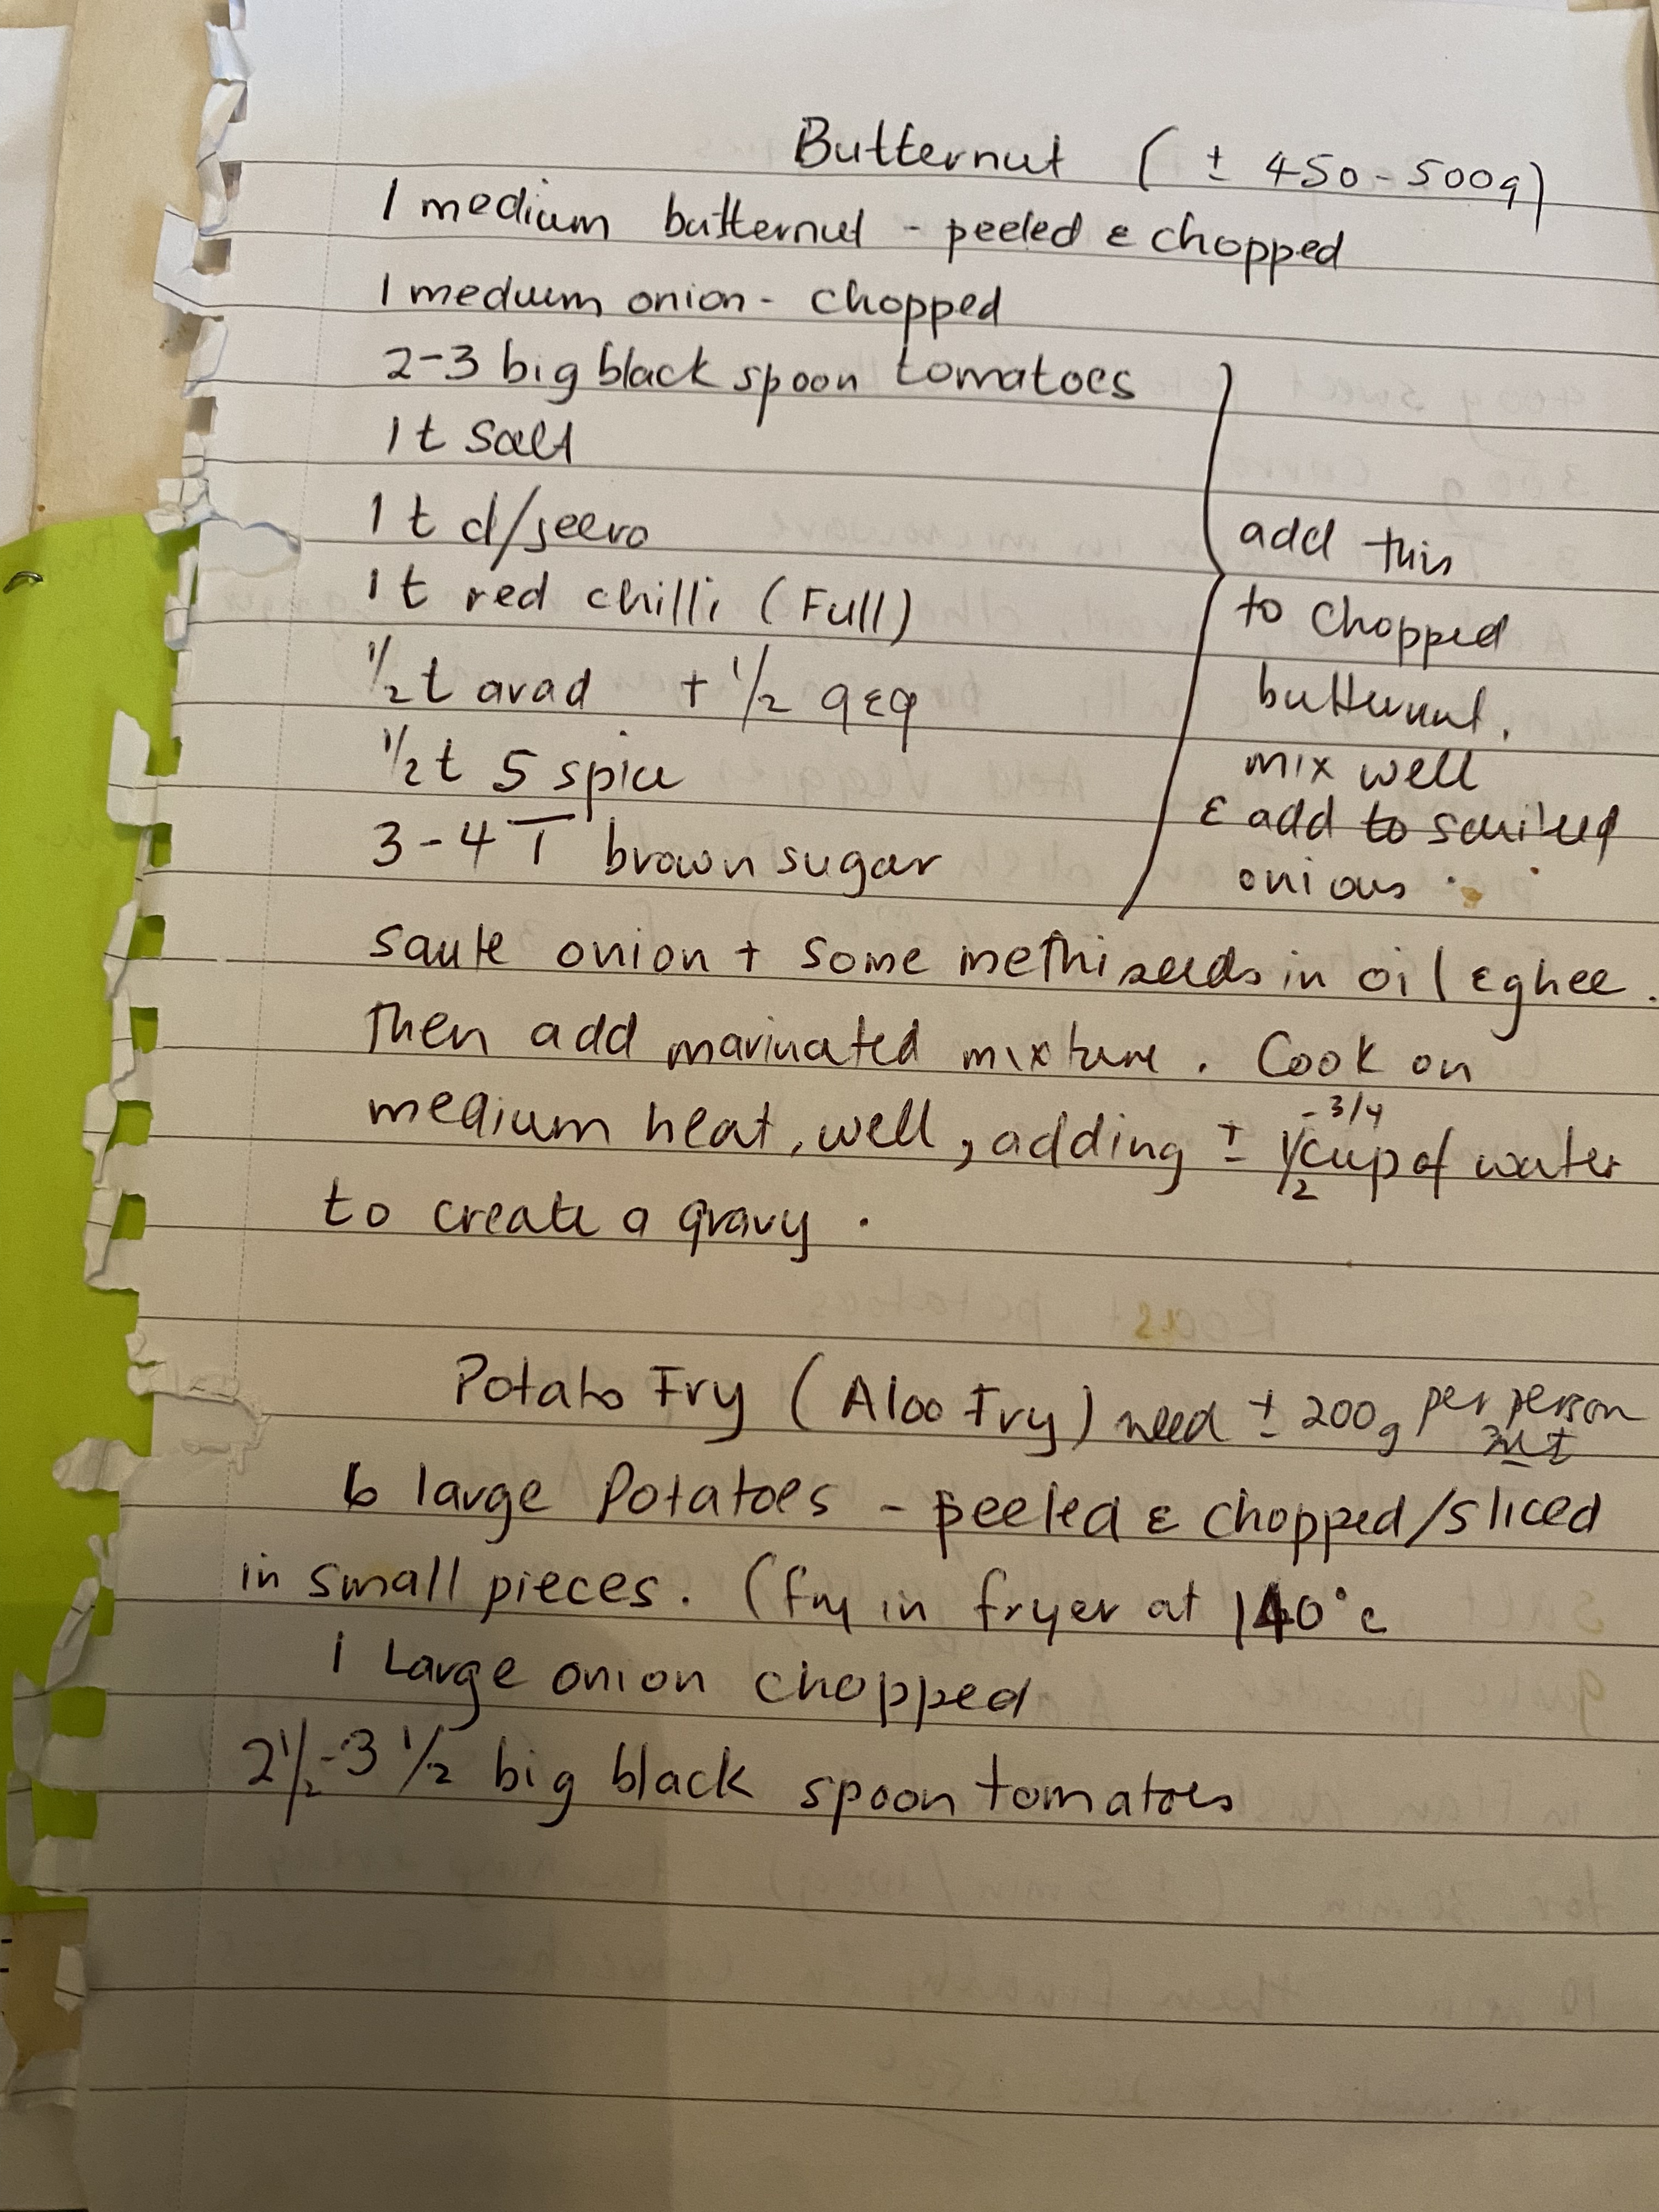 Butternut ( ± 450-500g)
1 medium butternut - peeled & chopped
1 medium onion - chopped
2-3 big black spoon tomatoes
1 t salt
1 t d/jeero
1 t red chilli (Full)
1/2 t arad + 1/2 g&g
1/2 t 5 spice
3-4 T brown sugar
add this
to chopped
butternut.
mix well
& add to
onions.
saute onion + some methi seeds in oil & ghee.
Then add marinated mixture. Cook on
medium heat, well, adding ± 1/2 -3/4 cup of water
to create a gravy.
Potato Fry (Aloo Fry) need ± 200g per person
6 large Potatoes - peeled & chopped/sliced
in small pieces. (fry in fryer at 140°c
1 Large onion chopped
2 1/2-3 1/2 big black spoon tomatoes